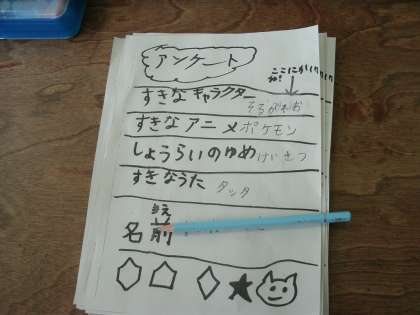 アンケート
ここにかいてね!
すきなキャラクター そるがれお
すきなアニメ ポケモン
しょうらいのゆめ けいさつ
すきなうた タッタ
名前